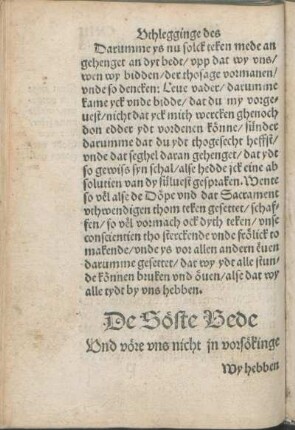 Vthlegginge des
Darumme ys nu solck teken mede an
gehenget an dyt bede/ vpp dat wy vns/
wen wy bidden/ der thosage vormanen/
vnde so dencken: Leue vader/ darumme
kame yck vnde bidde/ dat du my vorge-
uest/ nicht dat yck mith wercken ghenoch
don edder ydt vordenen könne/ sünder
darumme dat du ydt thogesecht heffst/
vnde dat seghel daran gehenget/ dat ydt
so gewiss syn schal/ alse hedde jck eine ab
solutien van dy süluest gespraken. Wente
so vël alse de Döpe vnd dat Sacrament
vthwendigen thom teken gesettet/ schaf-
fen/ so vël vormach ock dyth teken/ vnse
conscientien tho sterckende vnde frölick to
makende/ vnde ys vor allen andern euen
darumme gesettet/ dat wy ydt alle stun-
de können bruken vnd öuen/ alse dat wy
alle tydt by vns hebben.
De Söste Bede
Vnd vöre vns nicht jn vorsökinge
Wy hebben